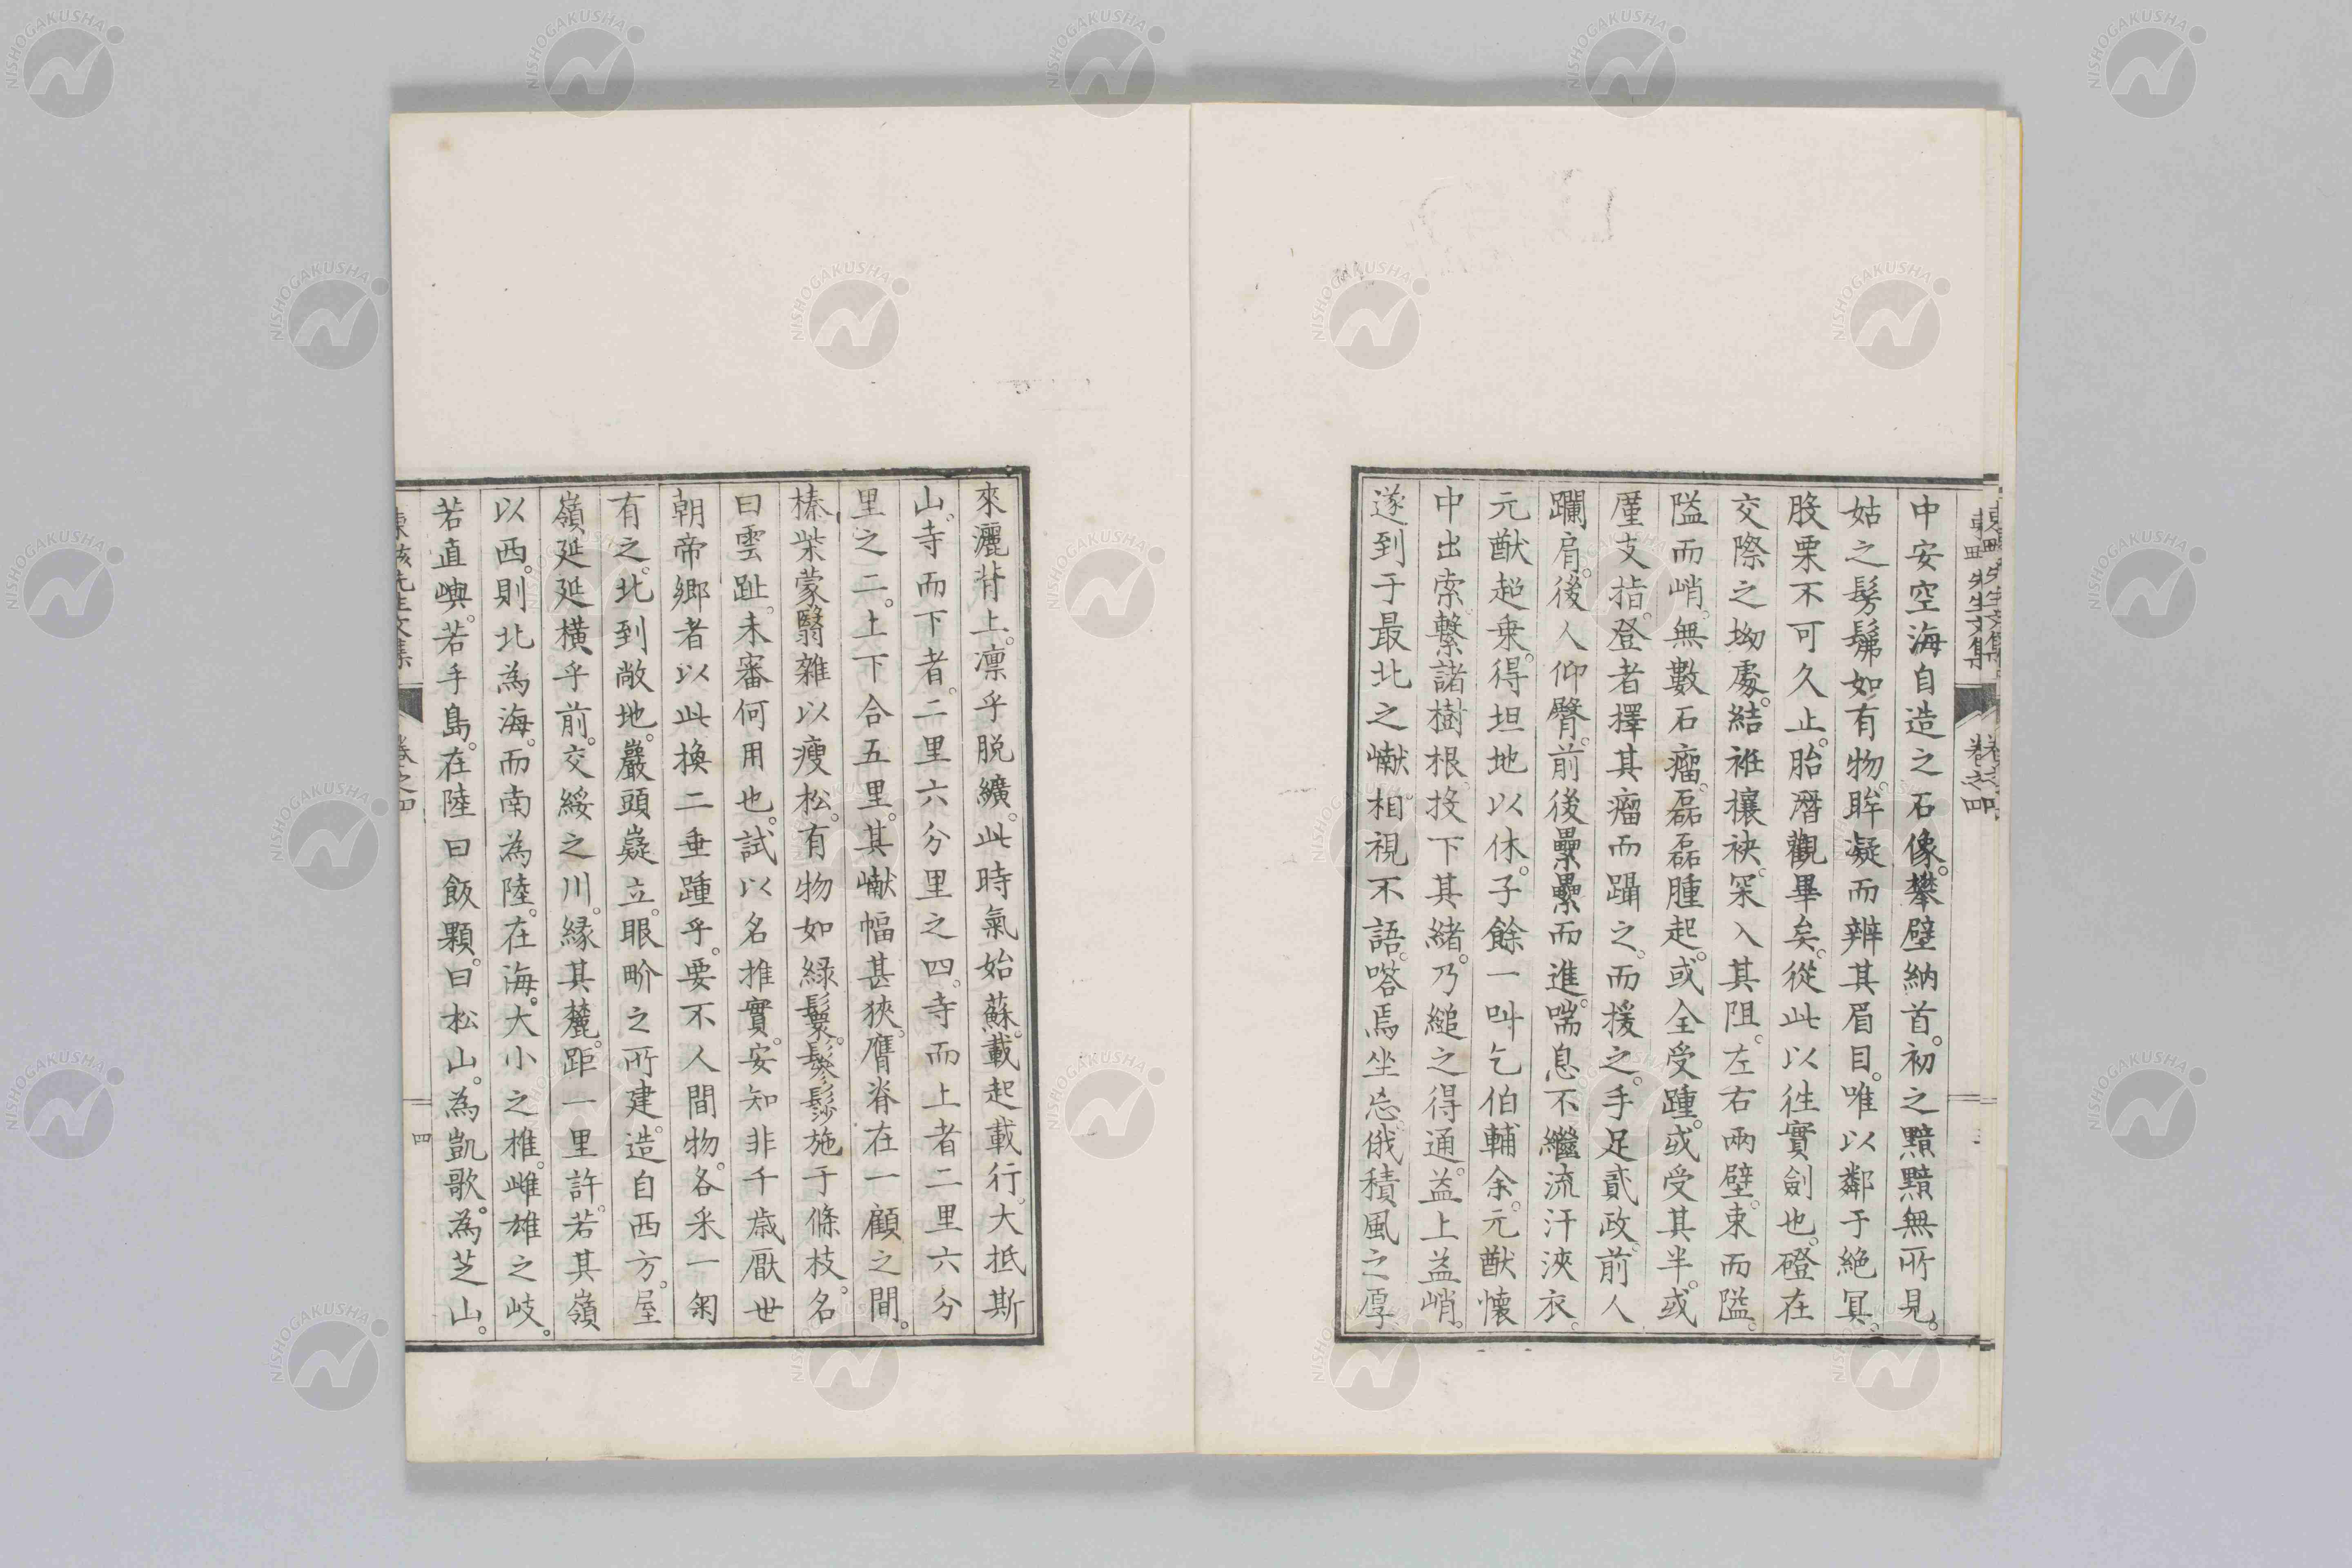 中安空海自造之石像。攀壁納首。初之黯黯無所見。
姑之髣髴如有物。眸凝而辨其眉目。唯以鄰于絶冥。
股栗不可久止。胎潛觀畢矣。從此以徃實劍也。磴在
交際之坳處。結袵攘袂。罙入其阻。左右兩壁。束而隘。
隘而峭。無數石瘤。磊磊腫起。或全受踵。或受其半。或
厪支指。登者擇其瘤而躡之。而援之。手足貳政。前人
躝肩。後人仰臀。前後纍纍而進。喘息不繼。流汗浹衣。
元猷超乗。得坦地以休。子餘一叫乞伯輔余。元猷懐
中出索。繫諸樹根。投下其緒。乃縋之得通。益上益峭。
遂到于最北之巘。相視不語。嗒焉坐忘。俄積風之厚
卷之四
來灑背上。凛乎脱纊。此時氣始蘇。載起載行。大抵斯
山。寺而下者。二里六分里之四。寺而上者二里六分
里之二。上下合五里。其巘幅甚狹。膺脊在一顧之間。
榛柴蒙翳。雜以瘦松。有物如緑鬟。鬖髿施于條枝。名
曰雲趾。未審何用也。試以名推實。安知非千歳厭世
朝帝郷者以此換二垂踵乎。要不人間物。各釆一匊
有之。北到敞地。巖頭嶷立。眼界之所建。造自西方。屋
嶺延延橫乎前。交綏之川。縁其麓。距一里許。若其嶺
以西。則北為海。而南為陸。在海。大小之椎。雌雄之岐。
若直嶼。若手島。在陸曰飯顆。曰松山。為凱歌。為芝山。
卷之四
四
NISHOGAKUSHA